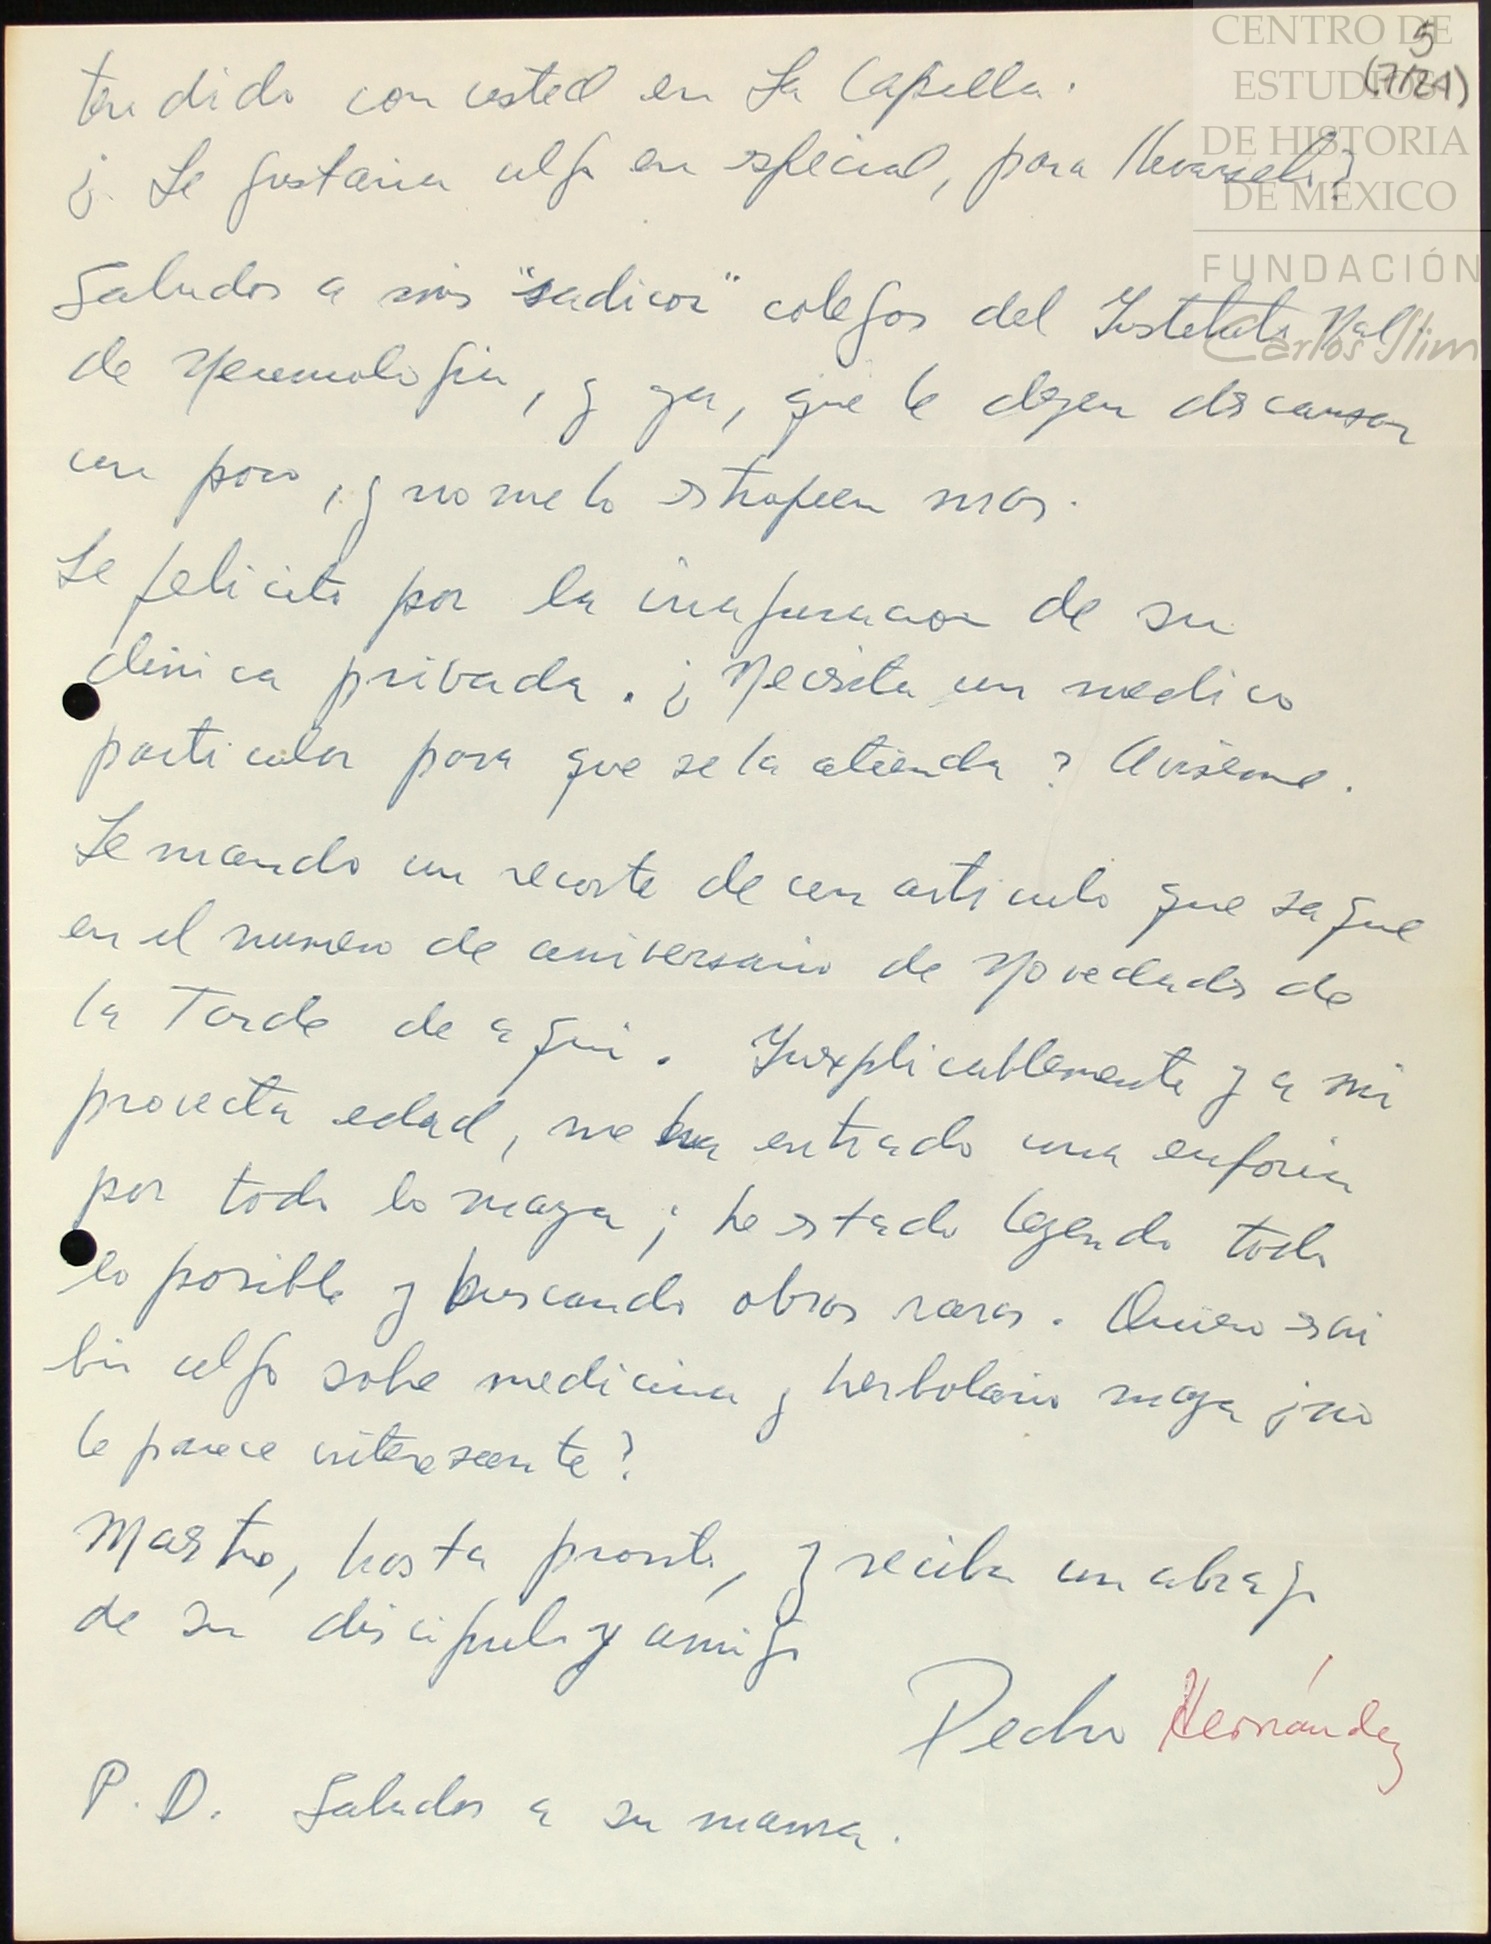 CENTRO DE
ESTUDIOS
DE HISTORIA
DE MÉXICO
FUNDACIÓN
Carlos Slim
5
(7/21)
tendido con usted en La Capilla.
¿Le gustaria algo en especial, para
Saludos a mis "sadicos" colegas del Instituto Nal.
de Neumologia, y ya, que le dejen descansar
un poco, y no me lo estropeen mas.
Le felicito por la inaguracion de su
clinica privada. ¿Necesita un medico
particular para que se la atienda? Aviseme.
Le mando un recorte de un articulo que saque
en el numero de aniversario de Novedades de
la Tarde de aqui. Inexplicablemente y a mi
provecta edad, me ha entrado una euforia
por todo lo maya; he estado leyendo todo
lo posible y buscando obras raras. Quiero escri
bir algo sobre medicina y herbolario maya ¿no
le parece interesante?
Maestro, hasta pronto, y reciba un abrazo
de su discipulo y amigo
Pedro Hernández
P.D. Saludos a su mama.